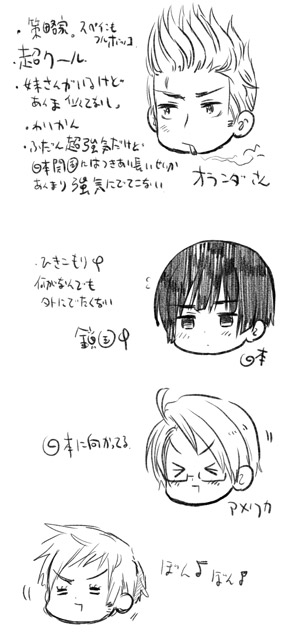 ・策略家。スペインも
フルボッコ
・超クール
・妹さんがいるけど
あんま似てない。
・わりかん
・ふだん超強気だけど
日本関係にはつきあい長いせいか
あんまり強気にでてこない
オランダさん
・ひきこもり中
何がなんでも
外にでたくない
鎖国中
日本
日本に向かってる
アメリカ
ぼん♪ぼん♪